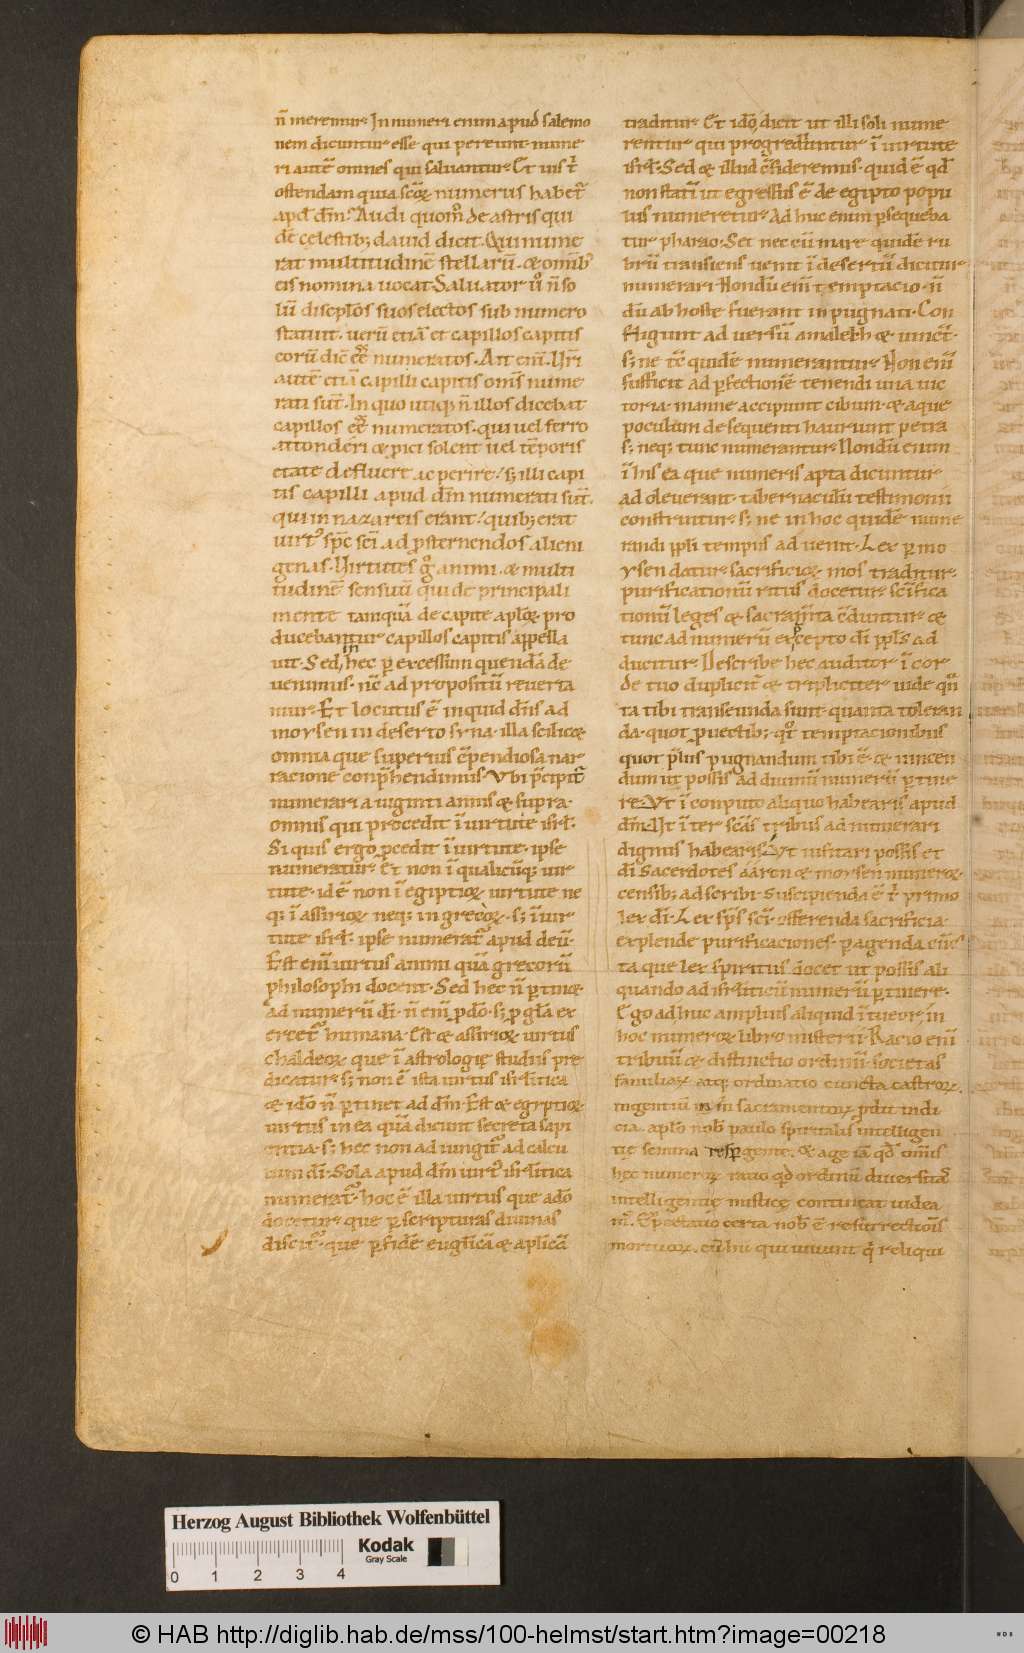 n̄ meremur. In numeri enim apud salemo
nem dicuntur esse qui pereunt. nume
ri autē omnes qui saluantur. Et uis t̄
ostendam quia scōꝝ numerus habet᷑
apd̄ dm̄. Audi quom̊ de astris qui
dē celestib; dauid dicit. Qui nume
rat multitudinē stellarū. ⁊ omīb
eis nomina uocat. Saluator ů n̄ so
lū discipłos suos electos sub numero
statuit. uerū etiā et capillos capitis
eorū dic̄ eē numeratos. Ait eni̅. Vr̄i
autē etiā capilli capitis om̄s nume
rati sūt. In quo utiq; n̄ illos dicebat
capillos eē numeratos. qui uel ferro
attonderi ⁊ ꝓici solent uel tēporis
etate defluere ac perire. s; illi capi
tis capilli apud dm̄ numerati sūt.
qui in nazareis erant. quib; erat
uirt᷒ sp̄c sc̄i ad ꝓsternendos alieni
genas. Virtutes g̊ animi. ⁊ multi
tudinē sensuū qui de principali
mente tamquā de capite apłoꝝ pro
ducebantur capillos capitis appella
uit. Sed in hec ꝑ excessum quendā de
uenimus. nc̄ ad propositū reuerta
mur. Et locutus ē inquid dn̄s ad
moysen in deserto syna. illa scilic⁊
omnia que superius cōpendiosa nar
ratione conp̄hendimus. Vbi p̄cipit᷑
numerari a uiginti annis ⁊ supra.
omnis qui procedit ī uirtute isrł.
Si quis ergo ꝓcedit ī uirtute. ipse
numeratur. Et non ī qualicūq; uir
tute. id ē non ī egiptioꝝ uirtute ne
q; ī assirioꝝ neq; in grecoꝝ. s; ī uir
tute isrł. ipse numerat᷑ apud deū.
Est eni̅ uirtus animi quā grecorū
philosophi docent. Sed hec n̄ ꝑtin⁊
ad numerū dī. n̄ eni̅ ꝓ dō. s; ꝓ głia ex
ercet᷑ humana. Est ⁊ assirioꝝ uirtus
chaldeoꝝ que ī astrologię studiis pre
dicatur. s; non ē ista uirtus isrł̄itica
⁊ idō n̄ ꝑtinet ad dm̄. Est ⁊ egyptioꝝ
uirtus in ea quā dicunt secreta sapi
entia. s; hec non ad iungit᷑ ad calcu
lum dī. Sola apud dm̄ uirt᷒ isrł̄itica
numerat᷑. hoc ē illa uirtus que a dō
docetur que ꝑ scripturas diuinas
discit᷑. que ꝑ fidē euglicā ⁊ aplicā
traditur. Et idō dicit ut illi soli nume
rentur qui progrediuntur ī uirtute
isrł. Sed ⁊ illud cōsideremus. quid ē qd̄
non statī ut egressus ē de egipto popu
lus numeretur. Ad huc enim ꝑsequeba
tur pharao. Set nec cū mare quidē ru
brū transiens uenit ī desertū dicitur
numerari. Nondū eni̅ temptacio. n̄
dū ab hoste fuerant inpugnati. Con
fligunt ad uersū amalech ⁊ uincūt.
s; ne tc̄ quidē numerantur. Non eni̅
sufficit ad ꝑfectionē tenendi una uic
toria. manne accipiunt cibum. ⁊ aque
poculum de sequenti hauriunt petra
s; neq; tunc numerantur. Nondū enim
ī his ea que numeris apta dicuntur
ad oleuerant. tabernaculū testimonii
construitur. s; ne in hoc quidē nume
randi ppłi tempus ad uenit. Lex ꝑ mo
ysen datur sacrificioꝝ mos traditur.
purificationū ritus docetur scīfica
tionū leges ⁊ sacramīta cōduntur ⁊
tunc ad numerū ex cepto dī ppłs ad
ducitur. Describe hec auditor ī cor
de tuo dupliciter ⁊ tripliciter uide qn̄
ta tibi transeunda sunt. quanta toleran
da. quot ꝓuectib; qt̊ temptacionibus
quot p̄liis pugnandum tibi ē. ⁊ uincen
dum ut possis ad diuinū numerū ꝑtine
re. Vt ī conputo aliquo habearis apud
dm̄. Vt ī ter scās tribus ad numerari
dignus habearis. Vt uisitari possis et
dī sacerdotes aaron ⁊ moysen numeꝝ.
censib; ad scribi. Suscipienda ē t̄ primo
lex dī. Lex sp̄s sc̄i. offerenda sacrificia.
explende purificaciones. ꝑagenda cūc
ta que lex spiritus docet ut possis ali
quando ad isrł̄iticū numerū ꝑtinere.
Ego ad huc amplius aliquid ītueor, in
hoc numeroꝝ libro misterii. Racio eni̅
tribuū ⁊ distinctio ordinū. societas
familiaꝝ atq; ordinatio cuncta castroꝝ.
ingentiū in sacramentoꝝ ꝓdit indi
cia. apło nob̄ paulo spiritalis intelligen
tię semina respgente. ⁊ age iā qd̄ om̄s
hec numeroꝝ ratio qd̄ ordinū diuersitas
intelligentię mistice contineat uidea
m᷒. Expectatio certa nob̄ ē resurrectiōis
mortuoꝝ. cū hii qui uiuunt q̄ reliqui
Herzog August Bibliothek Wolfenbüttel
Kodak
Gray Scale
0 1 2 3 4
© HAB http://diglib.hab.de/mss/100-helmst/start.htm?image=00218